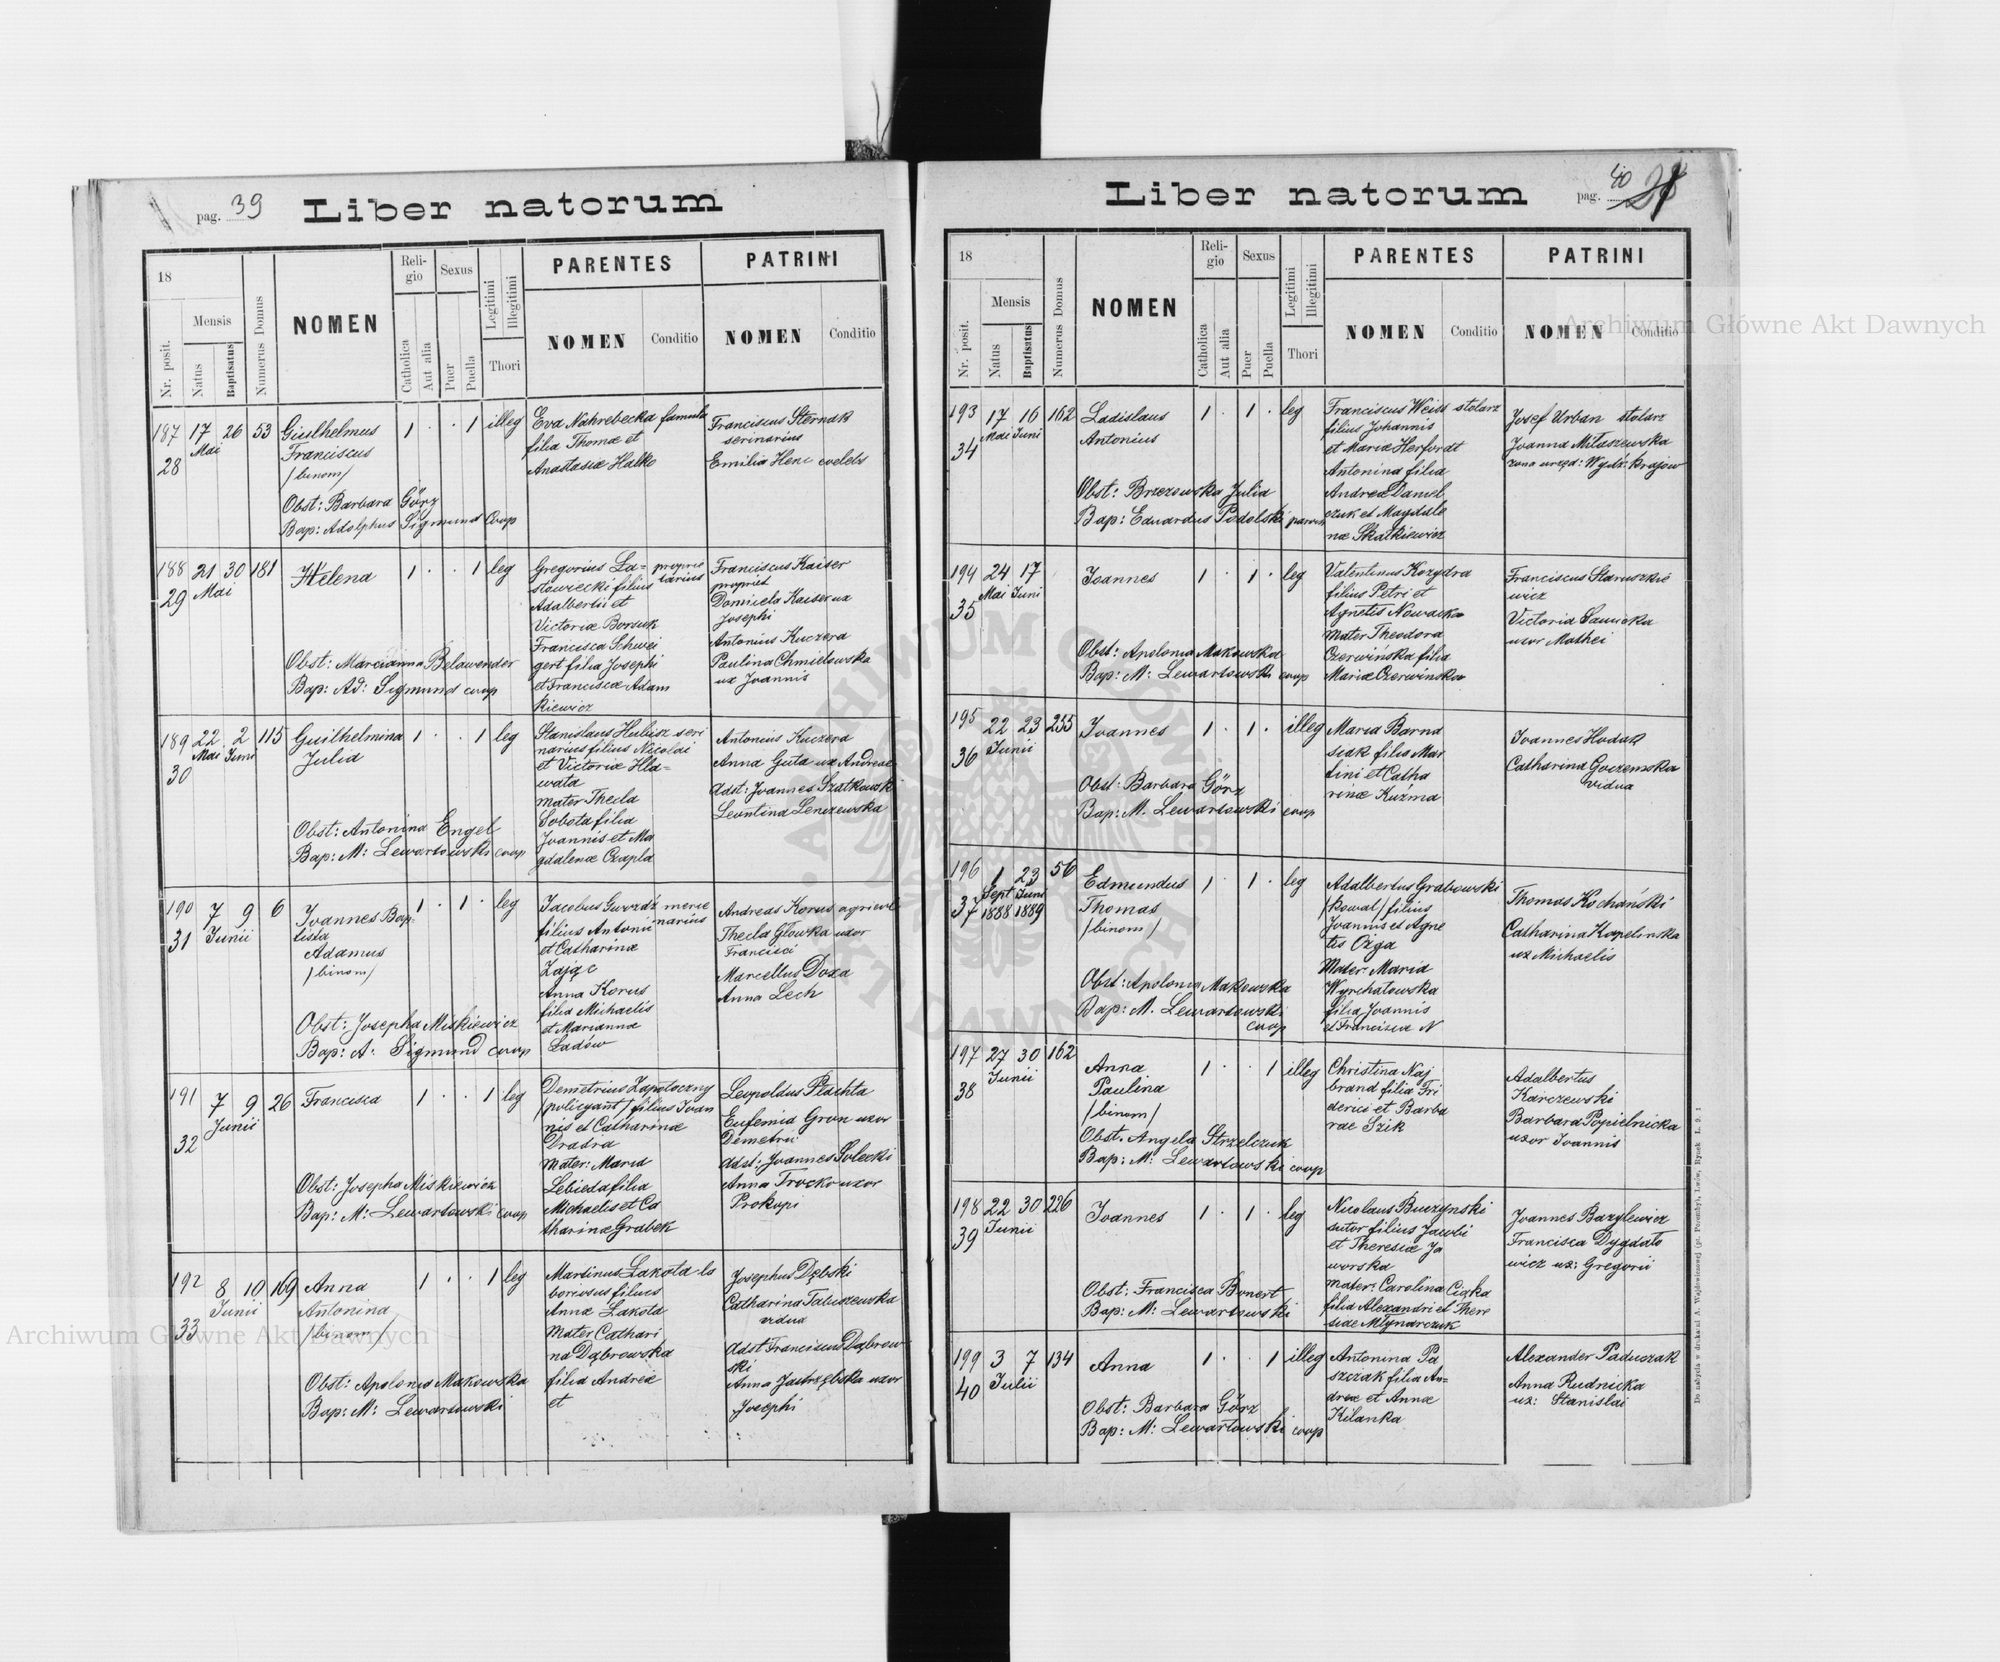 pag. 39 Liber natorum
18
Nr. posit.
Mensis
Natus
Baptisatus
Numerus Domus
NOMEN
Reli-
gio
Catholica
Aut alia
Sexus
Puer
Puella
Legitimi
Illegitimi
Thori
PARENTES
NOMEN
Conditio
PATRINI
NOMEN
Conditio
187 17 26 53
Mai
28
Giulhelmus
Franciscus
/binom/
1 . . 1 illeg
Obst: Barbara Görz
Bap: Adolphus Sigmund Coop
Eva Nahrebecka famula
filia Thomæ et
Anastasiæ Halko
Franciscus Sternak
serinarius
Emilia Henc coelebs
188 21 30 181
Mai
29
Helena
1 . . 1 leg
Obst: Marcianna Belawender
Bap: Ad: Sigmund coop
Gregorius La= proprie
stowiecki filius tarius
Adalberti et
Victoriæ Borsuk
Francisca Schwei
gert filia Josephi
et Franciscæ Adam
kiewicz
Franciscus Kaiser
propriet
Domicela Kaiser ux
Josephi
Antonius Kuczera
Paulina Chmielowska
ux Joannis
189 22 2 115
Mai Juni
30
Guilhelmina
Julia
1 . . 1 leg
Obst: Antonina Engel
Bap: M: Lewartowski coop
Stanislaus Hubisz seri
narius filius Nicolai
et Victoriæ Hla=
wata
Mater Thecla
Sobota filia
Joannis et Ma
gdalenæ Czapla
Antonius Kuczera
Anna Guta ux Andreae
Adst: Joannes Szatkowski
Leontina Lenczewska
190 7 9 6
Junii
31
Joannes Bap:
tista
Adamus
/binom/
1 . 1 . leg
Obst: Josepha Miskiewicz
Bap: A: Sigmund coop
Jacobus Gwozdź merce
filius Antonii narius
et Catharinæ
Zając
Anna Korus
filia Michaelis
et Marianna
Ladów
Andreas Korus agricol
Thecla Głowka uxor
Francisci
Marcellus Doxa
Anna Lech
191 7 9 26
Junii
32
Francisca
1 . . 1 leg
Obst: Josepha Miskiewicz
Bap: M: Lewartowski coop
Demetrius Zapotoczny
/policyant/ filius Joan
nis et Catharinæ
Dradra
Mater: Maria
Lebieda filia
Michaelis et Ca
tharinæ Grabek
Leopoldus Płachta
Eufemia Gron uxor
Demetrii
Adst: Joannes Solecki
Anna Trocko uxor
Prokopi
192 8 10 169
Junii
33
Anna
Antonina
/binom/
1 . . 1 leg
Obst: Apolonia Makowska
Bap: M: Lewartowski
Martinus Łakota la
boriosus filius
Annæ Lakota
Mater Cathari
na Dąbrowska
filia Andreæ
et
Josephus Dębski
Catharina Taluszewska
vidua
Adst Franciscus Dąbrow
ski
Anna Jastrzębska uxor
Josephi
Liber natorum pag. 40
18
Nr. posit.
Mensis
Natus
Baptisatus
Numerus Domus
NOMEN
Reli-
gio
Catholica
Aut alia
Sexus
Puer
Puella
Legitimi
Illegitimi
Thori
PARENTES
NOMEN
Conditio
PATRINI
NOMEN
Conditio
193 17 16 162
Mai Juni
34
Ladislaus
Antonius
1 . 1 . leg
Obst: Brzezowska Julia
Bap: Eduardus Podolski paroch
Franciscus Weiss stolarz
filius Johannis
et Mariæ Herfordt
Antonina filia
Andreæ Daniel
czuk et Magdale
næ Skałkiewicz
Josef Urban stolarz
Joanna Milaszewska
żona urzęd: Wydz: krajow
194 24 17
Mai Juni
35
Joannes
1 . 1 . leg
Obst: Apolonia Makowska
Bap: M: Lewartowski coop
Valentinus Kozydra
filius Petri et
Agnetis Nowacka
Mater Theodora
Czerwińska filia
Mariæ Czerwinska
Franciscus Staruszkie
wicz
Victoria Sawicka
uxor Mathei
195 22 23 255
Junii
36
Joannes
1 . 1 . illeg
Obst: Barbara Görz
Bap: M. Lewartowski coop
Maria Barna
siak filia Mar
tini et Catha
rinæ Kuźma
Joannes Huduq
Catharina Goczemska
vidua
196 1 23 56
Sept Juni
37 1888 1889
Edmundus
Thomas
/binom/
1 . 1 . leg
Obst: Apolonia Makowska
Bap: M. Lewartowski
coop
Adalbertus Grabowski
/kowal/ filius
Joannis et Agne
tis Oźga
Mater Maria
Wyrchatowska
filia Joannis
et Francisca N
Thomas Kochański
Catharina Kapelinska
ux Michaelis
197 27 30 162
Junii
38
Anna
Paulina
/binom/
1 . . 1 illeg
Obst. Angela Strzelczuk
Bap: M: Lewartowski coop
Christina Naj
brand filia Fri
derici et Barba
rae Szik
Adalbertus
Karczewski
Barbara Popielnicka
uxor Joannis
198 22 30 226
Junii
39
Joannes
1 . 1 . leg
Obst: Francisca Bonert
Bap: M: Lewartowski
Nicolaus Buczynski
sutor filius Jacobi
et Theresiæ Ja
worska
Mater: Carolina Ciąka
filia Alexandri et There
siae Młynarczuk
Joannes Bazylewicz
Francisca Dygdało
wicz ux: Gregorii
199 3 7 134
Julii
40
Anna
1 . . 1 illeg
Obst: Barbara Görz
Bap: M: Lewartowski coop
Antonina Pa
szczak filia An=
dreæ et Annæ
Kilanka
Alexander Paduszak
Anna Rudnicka
ux: Stanislai
Archiwum Główne Akt Dawnych
Archiwum Główne Akt Dawnych
ARCHIWUM GŁÓWNE AKT DAWNYCH